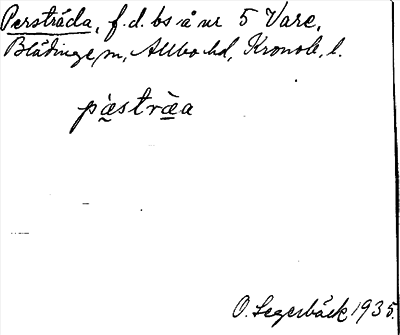 Perstråda, f.d. bs å nr 5 Vare,
Blädinge sn, Allbo hd, Kronob. l.
pæ̀stræ̀a
O. Segerbäck 1935.